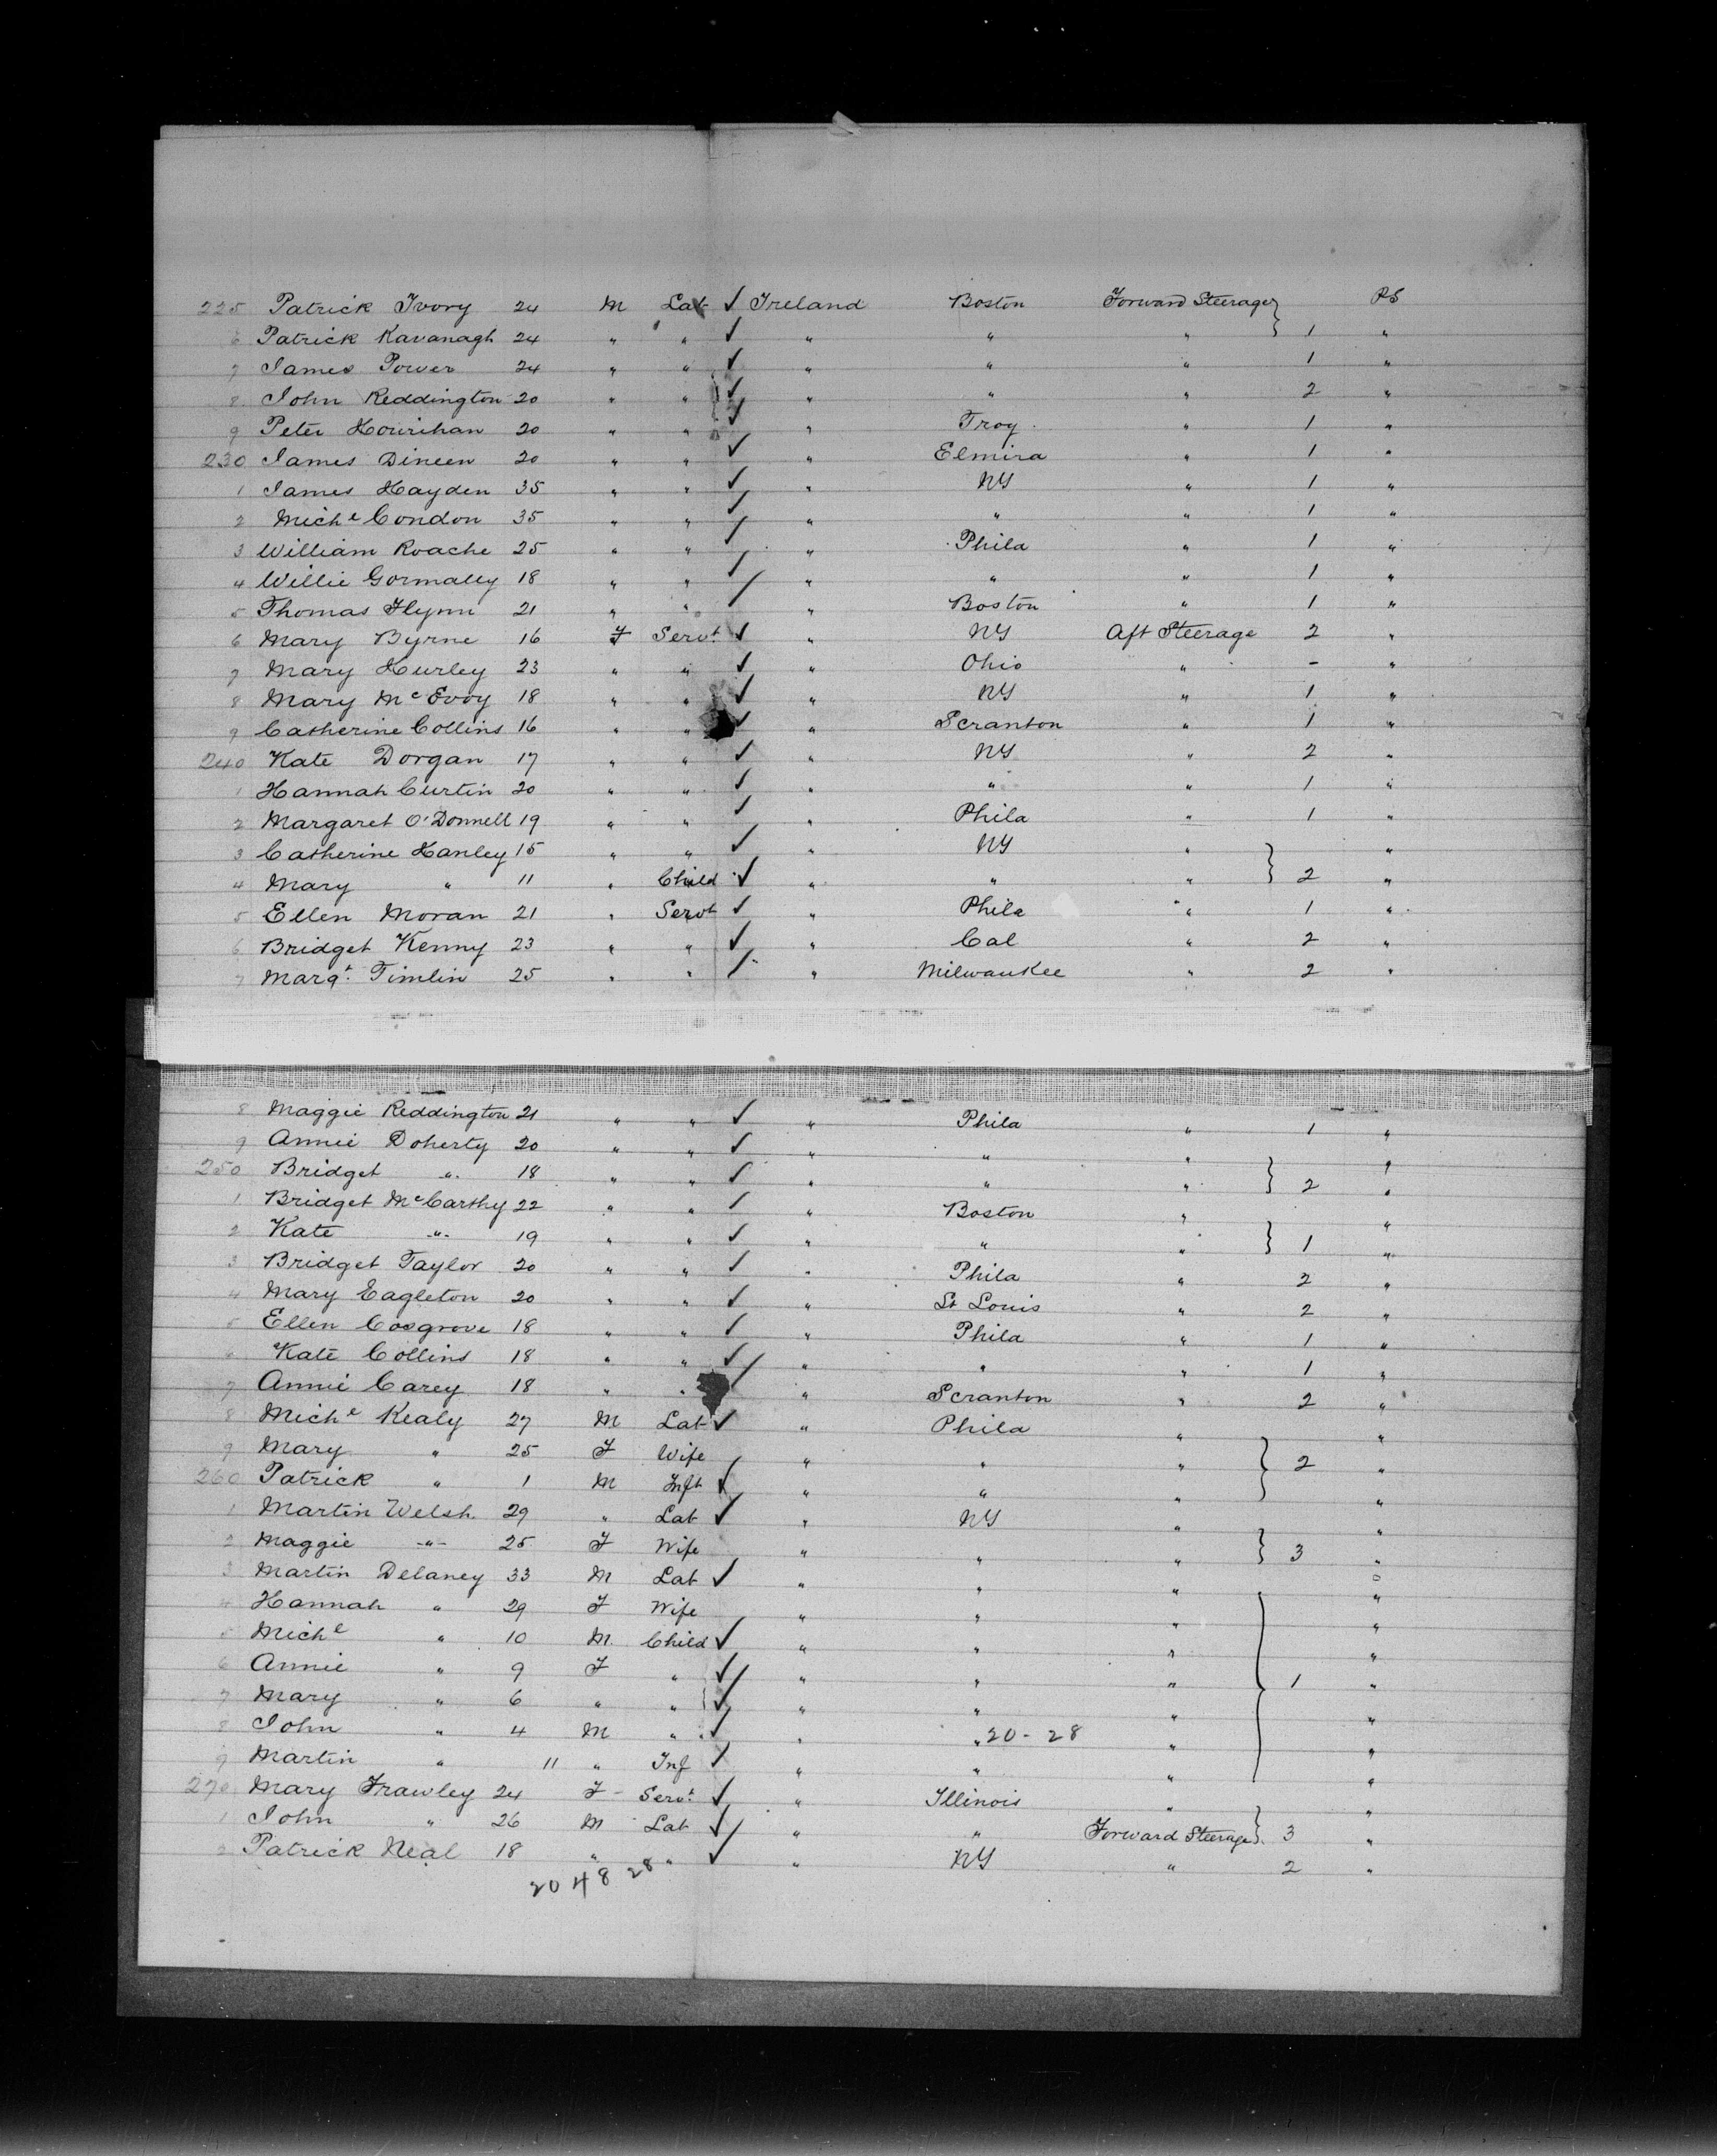 225 Patrick Ivory 24 M Lab ✓ Ireland Boston Forward Steerage } PS
6 Patrick Kavanagh 24 " " ✓ " " " 1 "
7 James Power 24 " " ✓ " " " 1 "
8 John Reddington 20 " " ✓ " " " 2 "
9 Peter Hourihan 20 " " ✓ " Troy " 1 "
230 James Dineen 20 " " ✓ " Elmira " 1 "
1 James Hayden 35 " " ✓ " NY " 1 "
2 Michl Condon 35 " " ✓ " " " 1 "
3 William Roache 25 " " ✓ " Phila " 1 "
4 Willie Gormaley 18 " " ✓ " " " 1 "
5 Thomas Flynn 21 " " ✓ " Boston " 1 "
6 Mary Byrne 16 F Servt ✓ " NY Aft Steerage 2 "
7 Mary Hurley 23 " " ✓ " Ohio " - "
8 Mary McEvoy 18 " " ✓ " NY " 1 "
9 Catherine Collins 16 " " ✓ " Scranton " 1 "
240 Kate Dorgan 17 " " ✓ " NY " 2 "
1 Hannah Curtin 20 " " ✓ " " " 1 "
2 Margaret O'Donnell 19 " " ✓ " Phila " 1 "
3 Catherine Hanley 15 " " ✓ " NY " "
4 Mary " 11 " Child ✓ " " " } 2 "
5 Ellen Moran 21 " Servt ✓ " Phila " 1 "
6 Bridget Kenny 23 " " ✓ " Cal " 2 "
7 Margt. Timlin 25 " " ✓ " Milwaukee " 2 "
8 Maggie Reddington 21 " " ✓ " Phila " 1 "
9 Annie Doherty 20 " " ✓ " " " "
250 Bridget " 18 " " ✓ " " " } 2 "
1 Bridget McCarthy 22 " " ✓ " Boston " "
2 Kate " 19 " " ✓ " " " } 1 "
3 Bridget Taylor 20 " " ✓ " Phila " 2 "
4 Mary Eagleton 20 " " ✓ " St Louis " 2 "
5 Ellen Cosgrove 18 " " ✓ " Phila " 1 "
6 Kate Collins 18 " " ✓ " " " 1 "
7 Annie Carey 18 " " ✓ " Scranton " 2 "
8 Michl Kealy 27 M Lab ✓ " Phila " "
9 Mary " 25 F Wife " " " } 2 "
260 Patrick " 1 M Inft ✓ " " " "
1 Martin Welsh 29 " Lab ✓ " NY " "
2 Maggie " 25 F Wife " " " } 3 "
3 Martin Delaney 33 M Lab ✓ " " " "
4 Hannah " 29 F Wife " " " "
5 Michl " 10 M Child ✓ " " " "
6 Annie " 9 F " ✓ " " " } 1 "
7 Mary " 6 " " ✓ " " " "
8 John " 4 M " ✓ " " 20-28 " "
9 Martin " 11 " Inf ✓ " " " "
270 Mary Frawley 24 F Servt ✓ " Illinois " "
1 John " 26 M Lab ✓ " " Forward Steerage } 3 "
2 Patrick Neal 18 " " ✓ " NY " 2 "
20 48 28